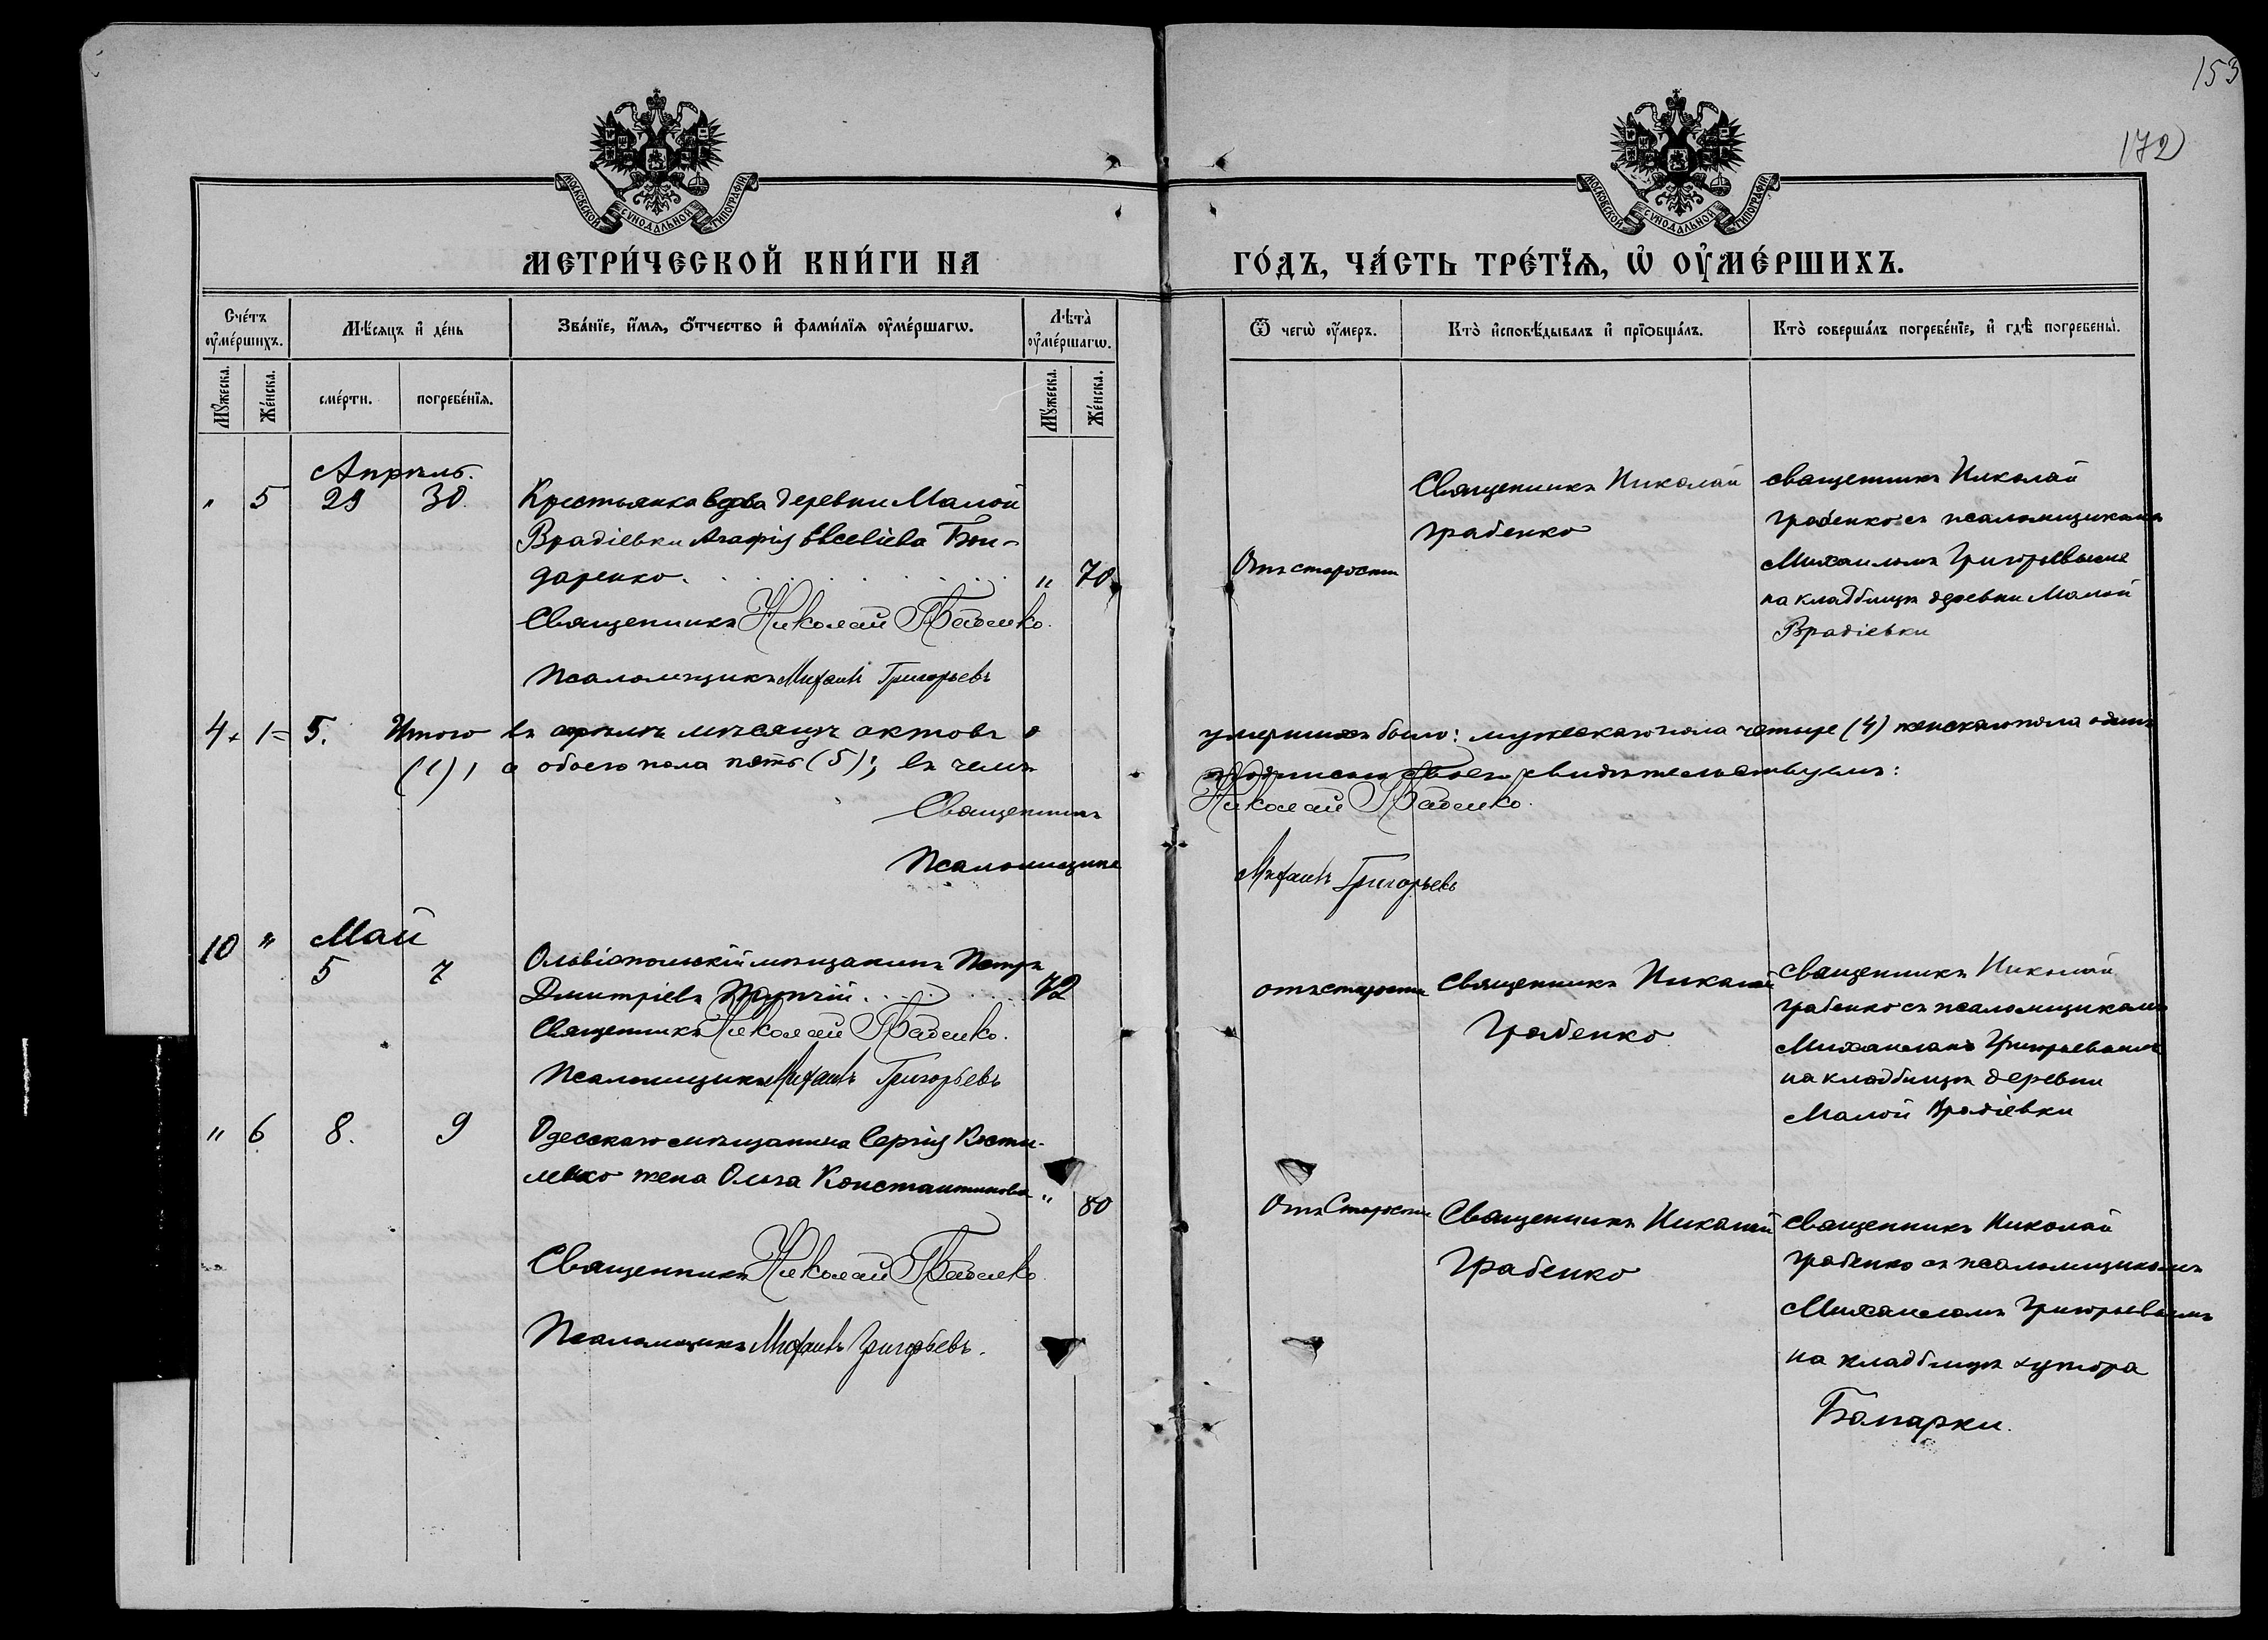 153
172
МОСКОВСКОЙ СѴНОДАЛЬНОЙ ТИПОГРАФІИ
МОСКОВСКОЙ СѴНОДАЛЬНОЙ ТИПОГРАФІИ
МЕТРИ́ЧЕСКОЙ КНИ́ГИ НА
ГО́ДЪ, ЧА́СТЬ ТРЕ́ТЇѦ, Ѡ҆ ОУ҆МЕ́РШИХЪ.
Сче́тъ оу҆ме́ршихъ.
Мѣ́сяцъ и҆ де́нь
Зва́нїе, и҆́мѧ, ѻ҆́тчество и҆ фами́лїѧ оу҆ме́ршагѡ.
Лѣ̑та̀ оу҆ме́ршагѡ.
Ѿ чегѡ̀ оу҆́меръ.
Кто̀ и҆сповѣ́дывалъ и҆ прїѻбща́лъ.
Кто̀ соверша́лъ погребе́нїе, и҆ гдѣ̀ погребены̀.
Мꙋ́жеска.
Же́нска.
сме́рти.
погребе́нїѧ.
Мꙋ́жеска.
Же́нска.
Апрѣль.
" 5 29 30.
Крестьянка вдова деревни Малой
Врадіевки Агафія Евсевіева Бон-
даренко. " 70
Священникъ Николай Грабенко.
Псаломщикъ Михаилъ Григорьевъ
Отъ старости
Священникъ Николай
Грабенко
священникъ Николай
Грабенко съ псаломщикомъ
Михаиломъ Григорьевымъ
на кладбищѣ деревни Малой
Врадіевки
4 + 1 = 5. Итого въ апрѣлѣ мѣсяцѣ актовъ о умершихъ было: мужескаго пола четыре (4) женскаго пола одинъ
(1), а обоего пола пять (5); въ чемъ подписомъ своего свидѣтельствуемъ:
Священникъ Николай Грабенко.
Псаломщикъ Михаилъ Григорьевъ
10 " Май
5 7
Ольвіопольскій мѣщанинъ Петръ
Дмитріевъ 72
Священникъ Николай Грабенко.
Псаломщикъ Михаилъ Григорьевъ
отъ старости
Священникъ Николай
Грабенко
священникъ Николай
Грабенко съ псаломщикомъ
Михаиломъ Григорьевымъ
на кладбищѣ деревни
Малой Врадіевки
" 6 8. 9
Одесскаго мѣщанина Сергія
жена Ольга Константинова " 80
Священникъ Николай Грабенко.
Псаломщикъ Михаилъ Григорьевъ.
Отъ Старости
Священникъ Николай
Грабенко
священникъ Николай
Грабенко съ псаломщикомъ
Михаиломъ Григорьевымъ
на кладбищѣ хутора